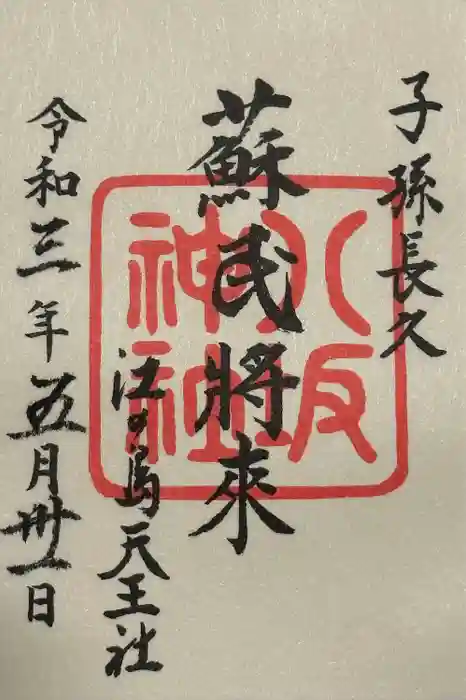 子孫長久
蘇民將來
八坂神社
江の島天王社
令和三年五月卅一日